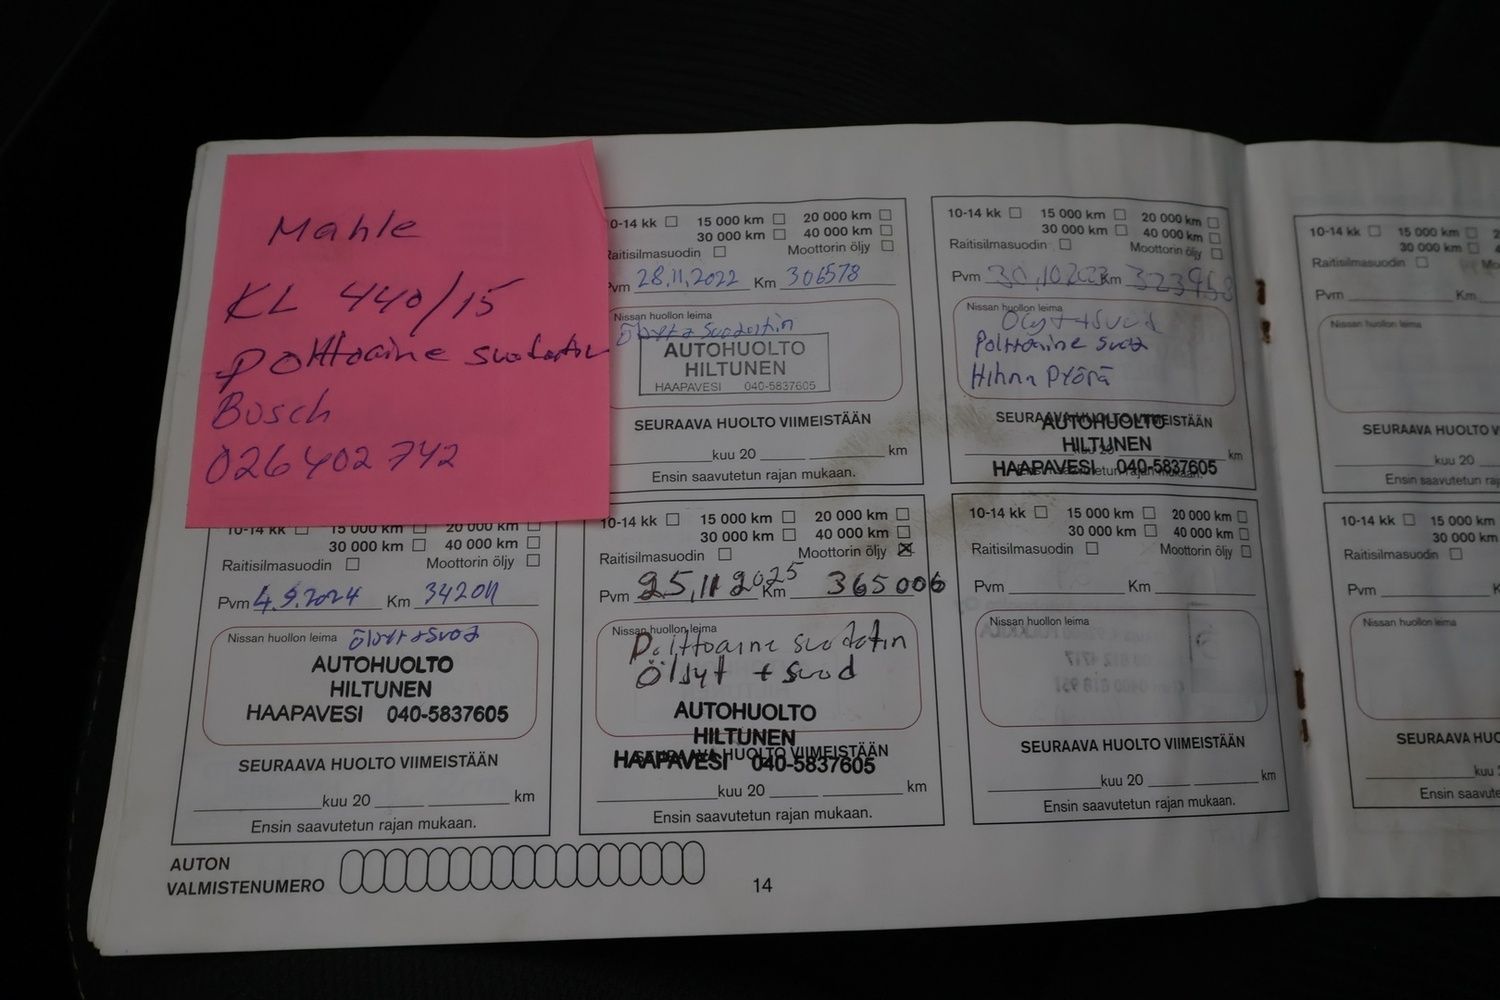 Mahle
KL 440/15
Polttoaine suodatin
Bosch
026402742
10-14 kk 15 000 km 20 000 km
30 000 km 40 000 km
Raitisilmasuodin Moottorin öljy
Pvm 28.11.2022 Km 306578
Nissan huollon leima
Öljyt + Suodatin
AUTOHUOLTO
HILTUNEN
HAAPAVESI 040-5837605
SEURAAVA HUOLTO VIIMEISTÄÄN
kuu 20 km
Ensin saavutetun rajan mukaan.
10-14 kk 15 000 km 20 000 km
30 000 km 40 000 km
Raitisilmasuodin Moottorin öljy
Pvm Km
Nissan huollon leima
Öljyt + Suod
Polttoaine suod
Hihna Pyörä
SEURAAVA HUOLTO VIIMEISTÄÄN
AUTOHUOLTO
HILTUNEN
kuu 20 km
HAAPAVESI 040-5837605
Ensin saavutetun rajan mukaan.
10-14 kk 15 000 km
30 000 km
Raitisilmasuodin
Pvm Km
Nissan huollon leima
SEURAAVA HUOLTO
kuu 20
Ensin saavutetun
10-14 kk 15 000 km 20 000 km
30 000 km 40 000 km
Raitisilmasuodin Moottorin öljy
Pvm 4.9.2024 Km
Nissan huollon leima Öljyt + Suod
AUTOHUOLTO
HILTUNEN
HAAPAVESI 040-5837605
SEURAAVA HUOLTO VIIMEISTÄÄN
kuu 20 km
Ensin saavutetun rajan mukaan.
10-14 kk 15 000 km 20 000 km
30 000 km 40 000 km
Raitisilmasuodin Moottorin öljy
Pvm 25.11 2025 Km 365006
Nissan huollon leima
Polttoaine suodatin
Öljyt + Suod
AUTOHUOLTO
HILTUNEN
SEURAAVA HUOLTO VIIMEISTÄÄN
HAAPAVESI 040-5837605
kuu 20 km
Ensin saavutetun rajan mukaan.
10-14 kk 15 000 km 20 000 km
30 000 km 40 000 km
Raitisilmasuodin Moottorin öljy
Pvm Km
Nissan huollon leima
SEURAAVA HUOLTO VIIMEISTÄÄN
kuu 20 km
Ensin saavutetun rajan mukaan.
10-14 kk 15 000 km
30 000 km
Raitisilmasuodin
Pvm
Nissan huollon leima
SEURAAVA
kuu
Ensin
AUTON
VALMISTENUMERO
14